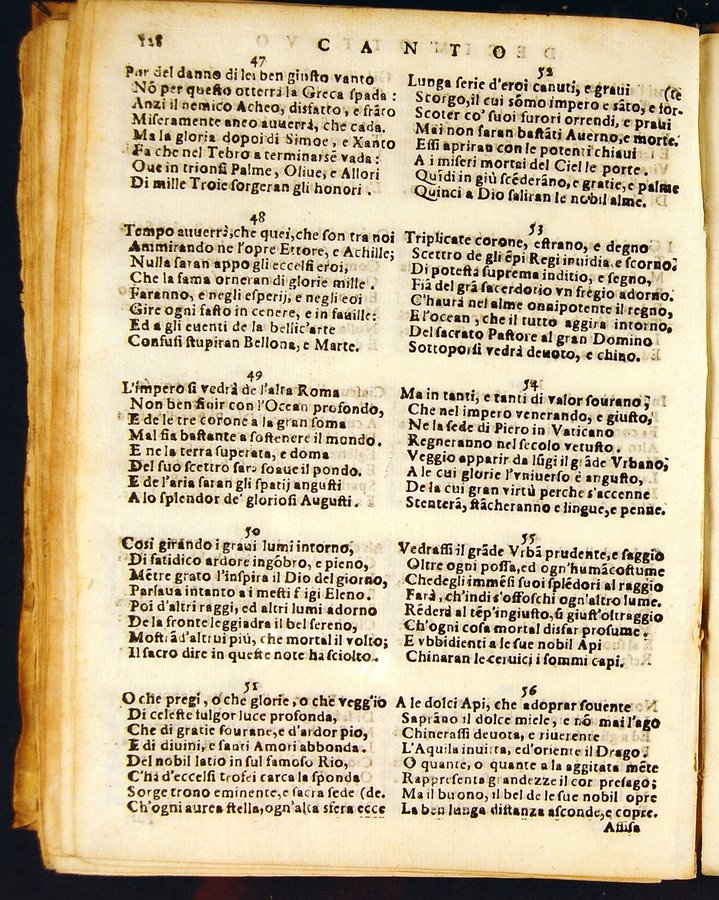 128
CANTO
47
Pur del danno di lei ben giusto vanto
Nõ per questo otterrà la Greca spada:
Anzi il nemico Acheo, disfatto, e frãto
Miseramente anco auuerrà, che cada.
Ma la gloria dopoi di Simoe, e Xanto
Fa che nel Tebro a terminarse vada:
Oue in trionfi Palme, Oliue, e Allori
Di mille Troie sorgeran gli honori.
48
Tempo auuerrà, che quei, che son tra noi
Ammirando ne l'opre Ettore, e Achille;
Nulla saran appo gli eccelsi eroi,
Che la fama orneran di glorie mille.
Faranno, e negli esperij, e negli eoi
Gire ogni fasto in cenere, e in fauille:
Ed a gli euenti de la bellic'arte
Confusi stupiran Bellona, e Marte.
49
L'impero si vedrà de l'alta Roma
Non ben finir con l'Ocean profondo,
E de le tre corone a la gran soma
Mal fia bastante a sostenere il mondo.
E ne la terra superata, e doma
Del suo scettro sarà soaue il pondo.
E de l'aria saran gli spatij angusti
A lo splendor de' gloriosi Augusti.
50
Così girando i graui lumi intorno,
Di fatidico ardore ingõbro, e pieno,
Mẽtre grato l'inspira il Dio del giorno,
Parlaua intanto a i mesti figi Eleno.
Poi d'altri raggi, ed altri lumi adorno
De la fronte leggiadra il bel sereno,
Mostrãd'altrui più, che mortal il volto;
Il sacro dire in queste note ha sciolto.
51
O che pregi, o che glorie, o che veggio
Di celeste fulgor luce profonda,
Che di gratie sourane, e d'ardor pio,
E di diuini, e santi Amori abbonda.
Del nobil latio in sul famoso Rio,
C'hà d'eccelsi trofei carca la sponda
Sorge trono eminente, e sacra sede (de.
Ch'ogni aurea stella, ogn'alta sfera ecce
52
Lunga serie d'eroi canuti, e graui (te
Scorgo, il cui sõmo impero e sãto, e for-
Scoter co' suoi furori orrendi, e praui
Mai non saran bastãti Auerno, e morte.
Essi apriran con le potenti chiaui
A i miseri mortai del Ciel le porte.
Quĩdi in giù scẽderãno, e gratie, e palme
Quinci a Dio saliran le nobil alme.
53
Triplicate corone, estrano, e degno
Scettro de gli ẽpi Regi inuidia, e scorno:
Di potestà suprema inditio, e segno,
Fia del grã sacerdotio vn fregio adorno.
C'haurà nel alme onnipotente il regno,
E l'ocean, che il tutto aggira intorno,
Del sacrato Pastore al gran Domino
Sottoporsi vedrà deuoto, e chino.
54
Ma in tanti, e tanti di valor sourano;
Che nel impero venerando, e giusto,
Ne la sede di Piero in Vaticano
Regneranno nel secolo vetusto.
Veggio apparir da lũgi il grãde Vrbano;
A le cui glorie l'vniuerso è angusto,
De la cui gran virtù perche s'accenne
Stenterà, stãcheranno e lingue, e penne.
55
Vedrassi il grãde Vrbã prudente, e saggio
Oltre ogni possa, ed ogn'humã costume
Che degli immẽsi suoi splẽdori al raggio
Farà, ch'indi s'offoschi ogn'altro lume.
Rẽderà al tẽp'ingiusto, sì giust'oltraggio
Ch'ogni cosa mortal disfar prosume.
E vbbidienti a le sue nobil Api
Chinaran le ceruici i sommi capi.
56
A le dolci Api, che adoprar souente
Saprãno il dolce miele, e nõ mai l'ago
Chinerassi deuota, e riuerente
L'Aquila inuitta, ed'oriente il Drago.
O quante, o quante a la aggitata mẽte
Rappresenta grandezze il cor presago;
Ma il buono, il bel de le sue nobil opre
La ben lunga distanza asconde, e copre.
Assisa